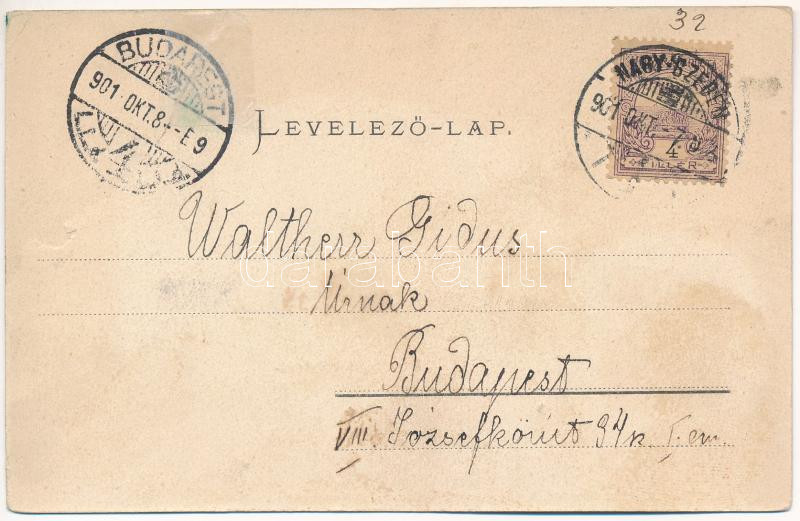 32
BUDAPEST
901 OKT. 8 - E 9
NAGY-SZEBEN
901 OKT. 7
4
FILLÉR
LEVELEZŐ-LAP.
Waltherr Gidus
Úrnak
Budapest
VIII. Józsefkörút 34 I. em.
darabanth